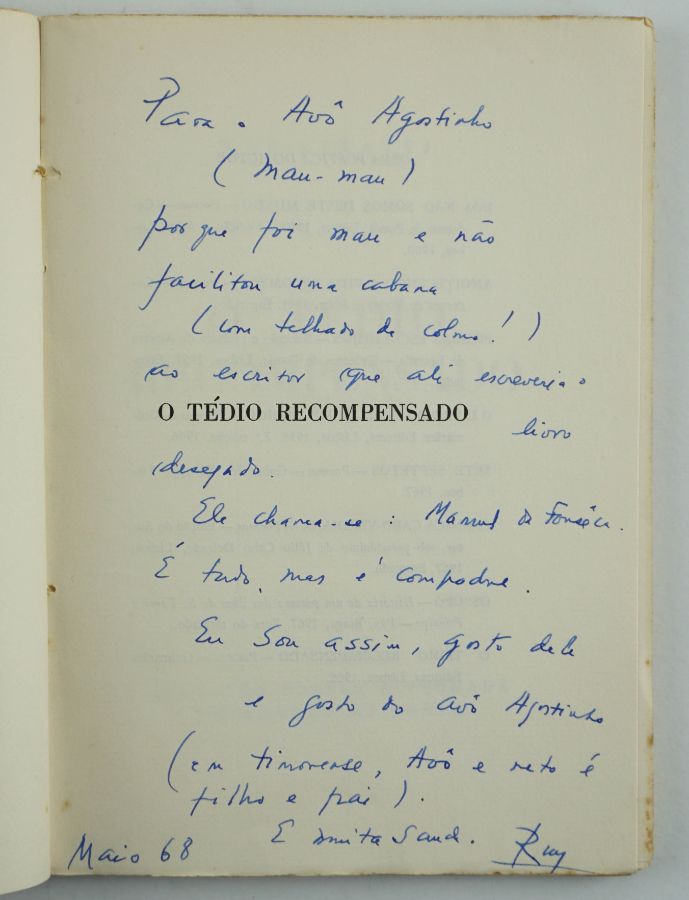 Para o Avô Agostinho
(Mau-mau)
porque foi mau e não
facilitou uma cabana
(com telhado de colmo!)
ao escritor que ali escreveria o
O TÉDIO RECOMPENSADO
livro
desejado.
Ele chama-se: Manuel da Fonseca.
É tudo, mas é compadre.
Eu sou assim, gosto dele
e gosto do avô Agostinho
(em timorense, Avô e neto é
filho e pai).
E muita Saude.
Maio 68
Ruy